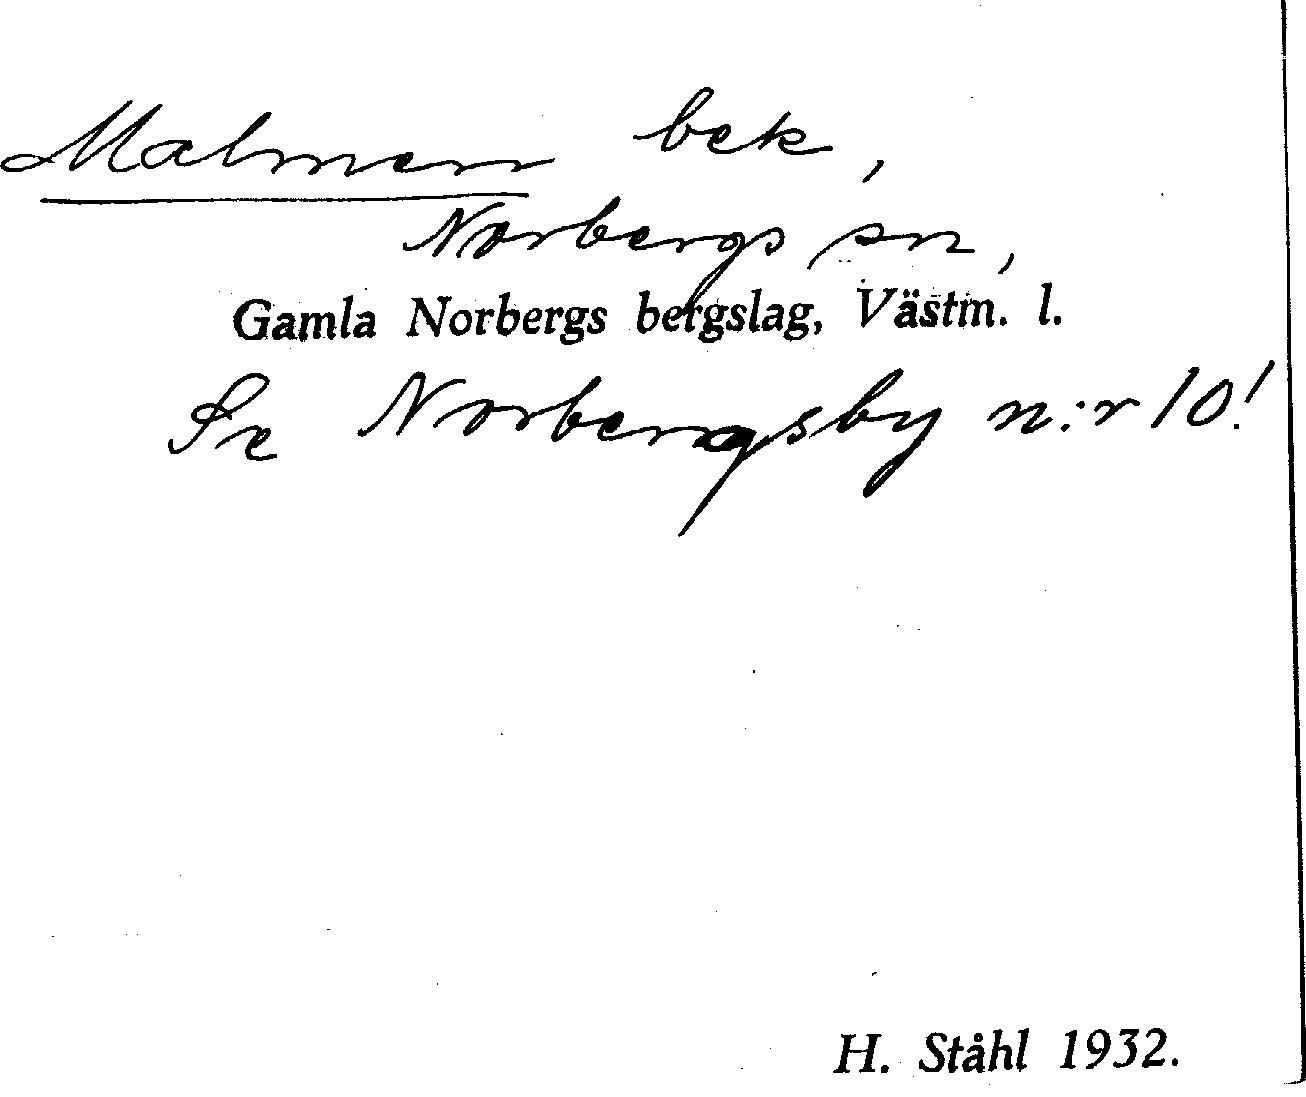 Malmen bek,
Norbergs sn,
Gamla Norbergs bergslag, Västm. l.
Se Norbergsby n:r 10!
H. Ståhl 1932.